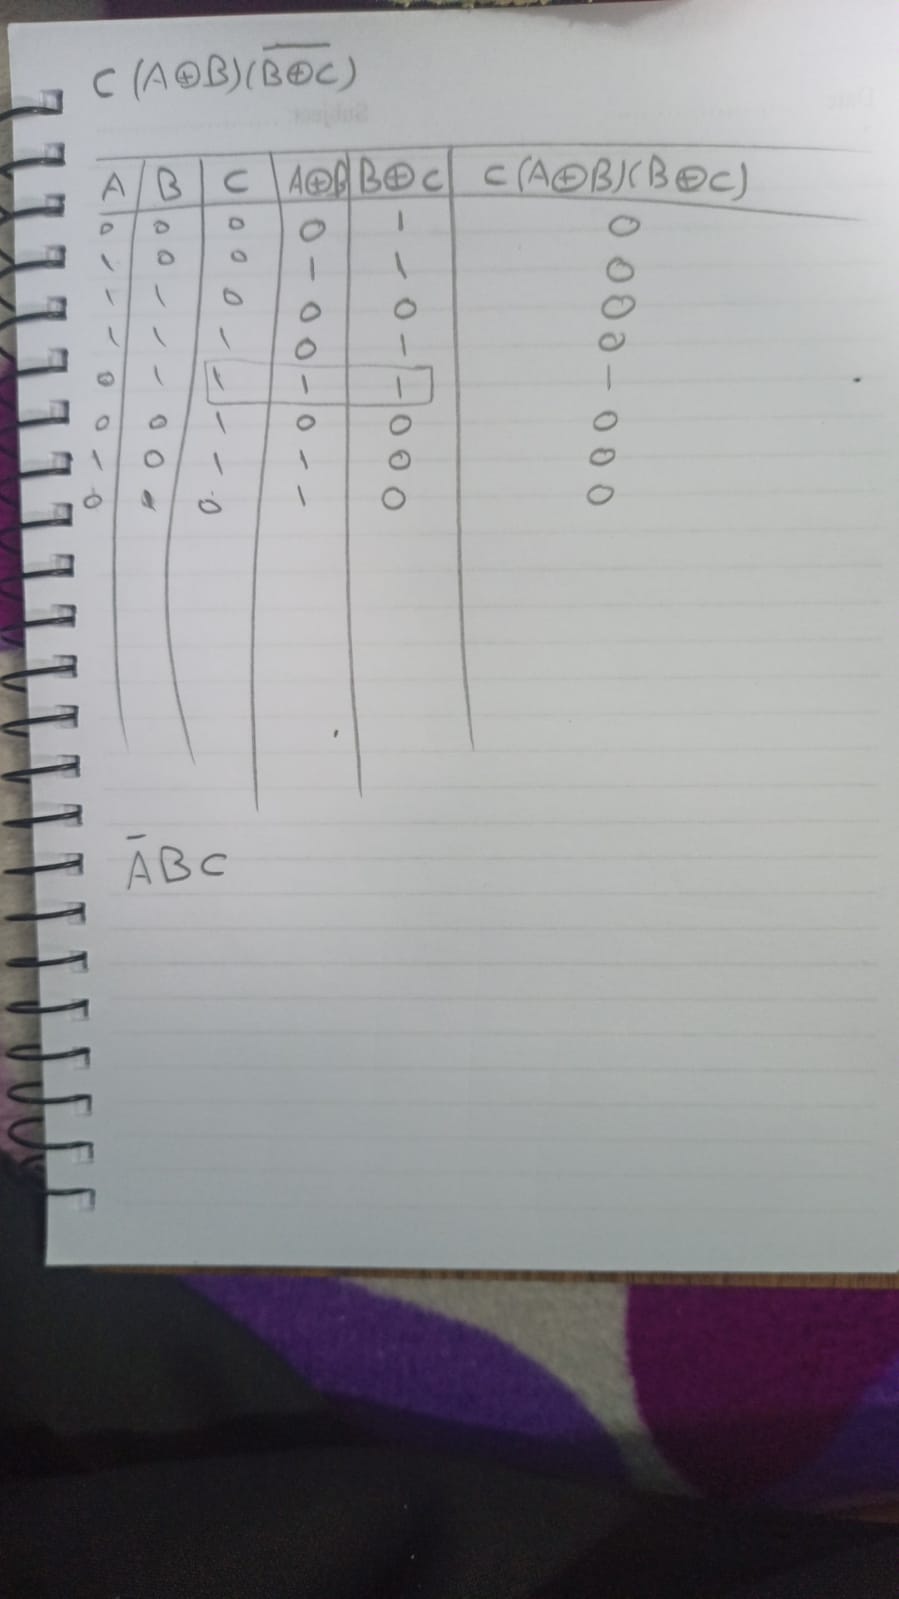 C (A⊕B)(B̅⊕̅C̅)
A B C A⊕B B⊕C C(A⊕B)(B⊕C)
0 0 0 0 1 0
1 0 0 1 1 0
1 1 0 0 0 0
1 1 1 0 1 0
0 1 1 1 1 1
0 0 1 0 0 0
1 0 1 1 0 0
0 1 0 1 0 0
A̅BC